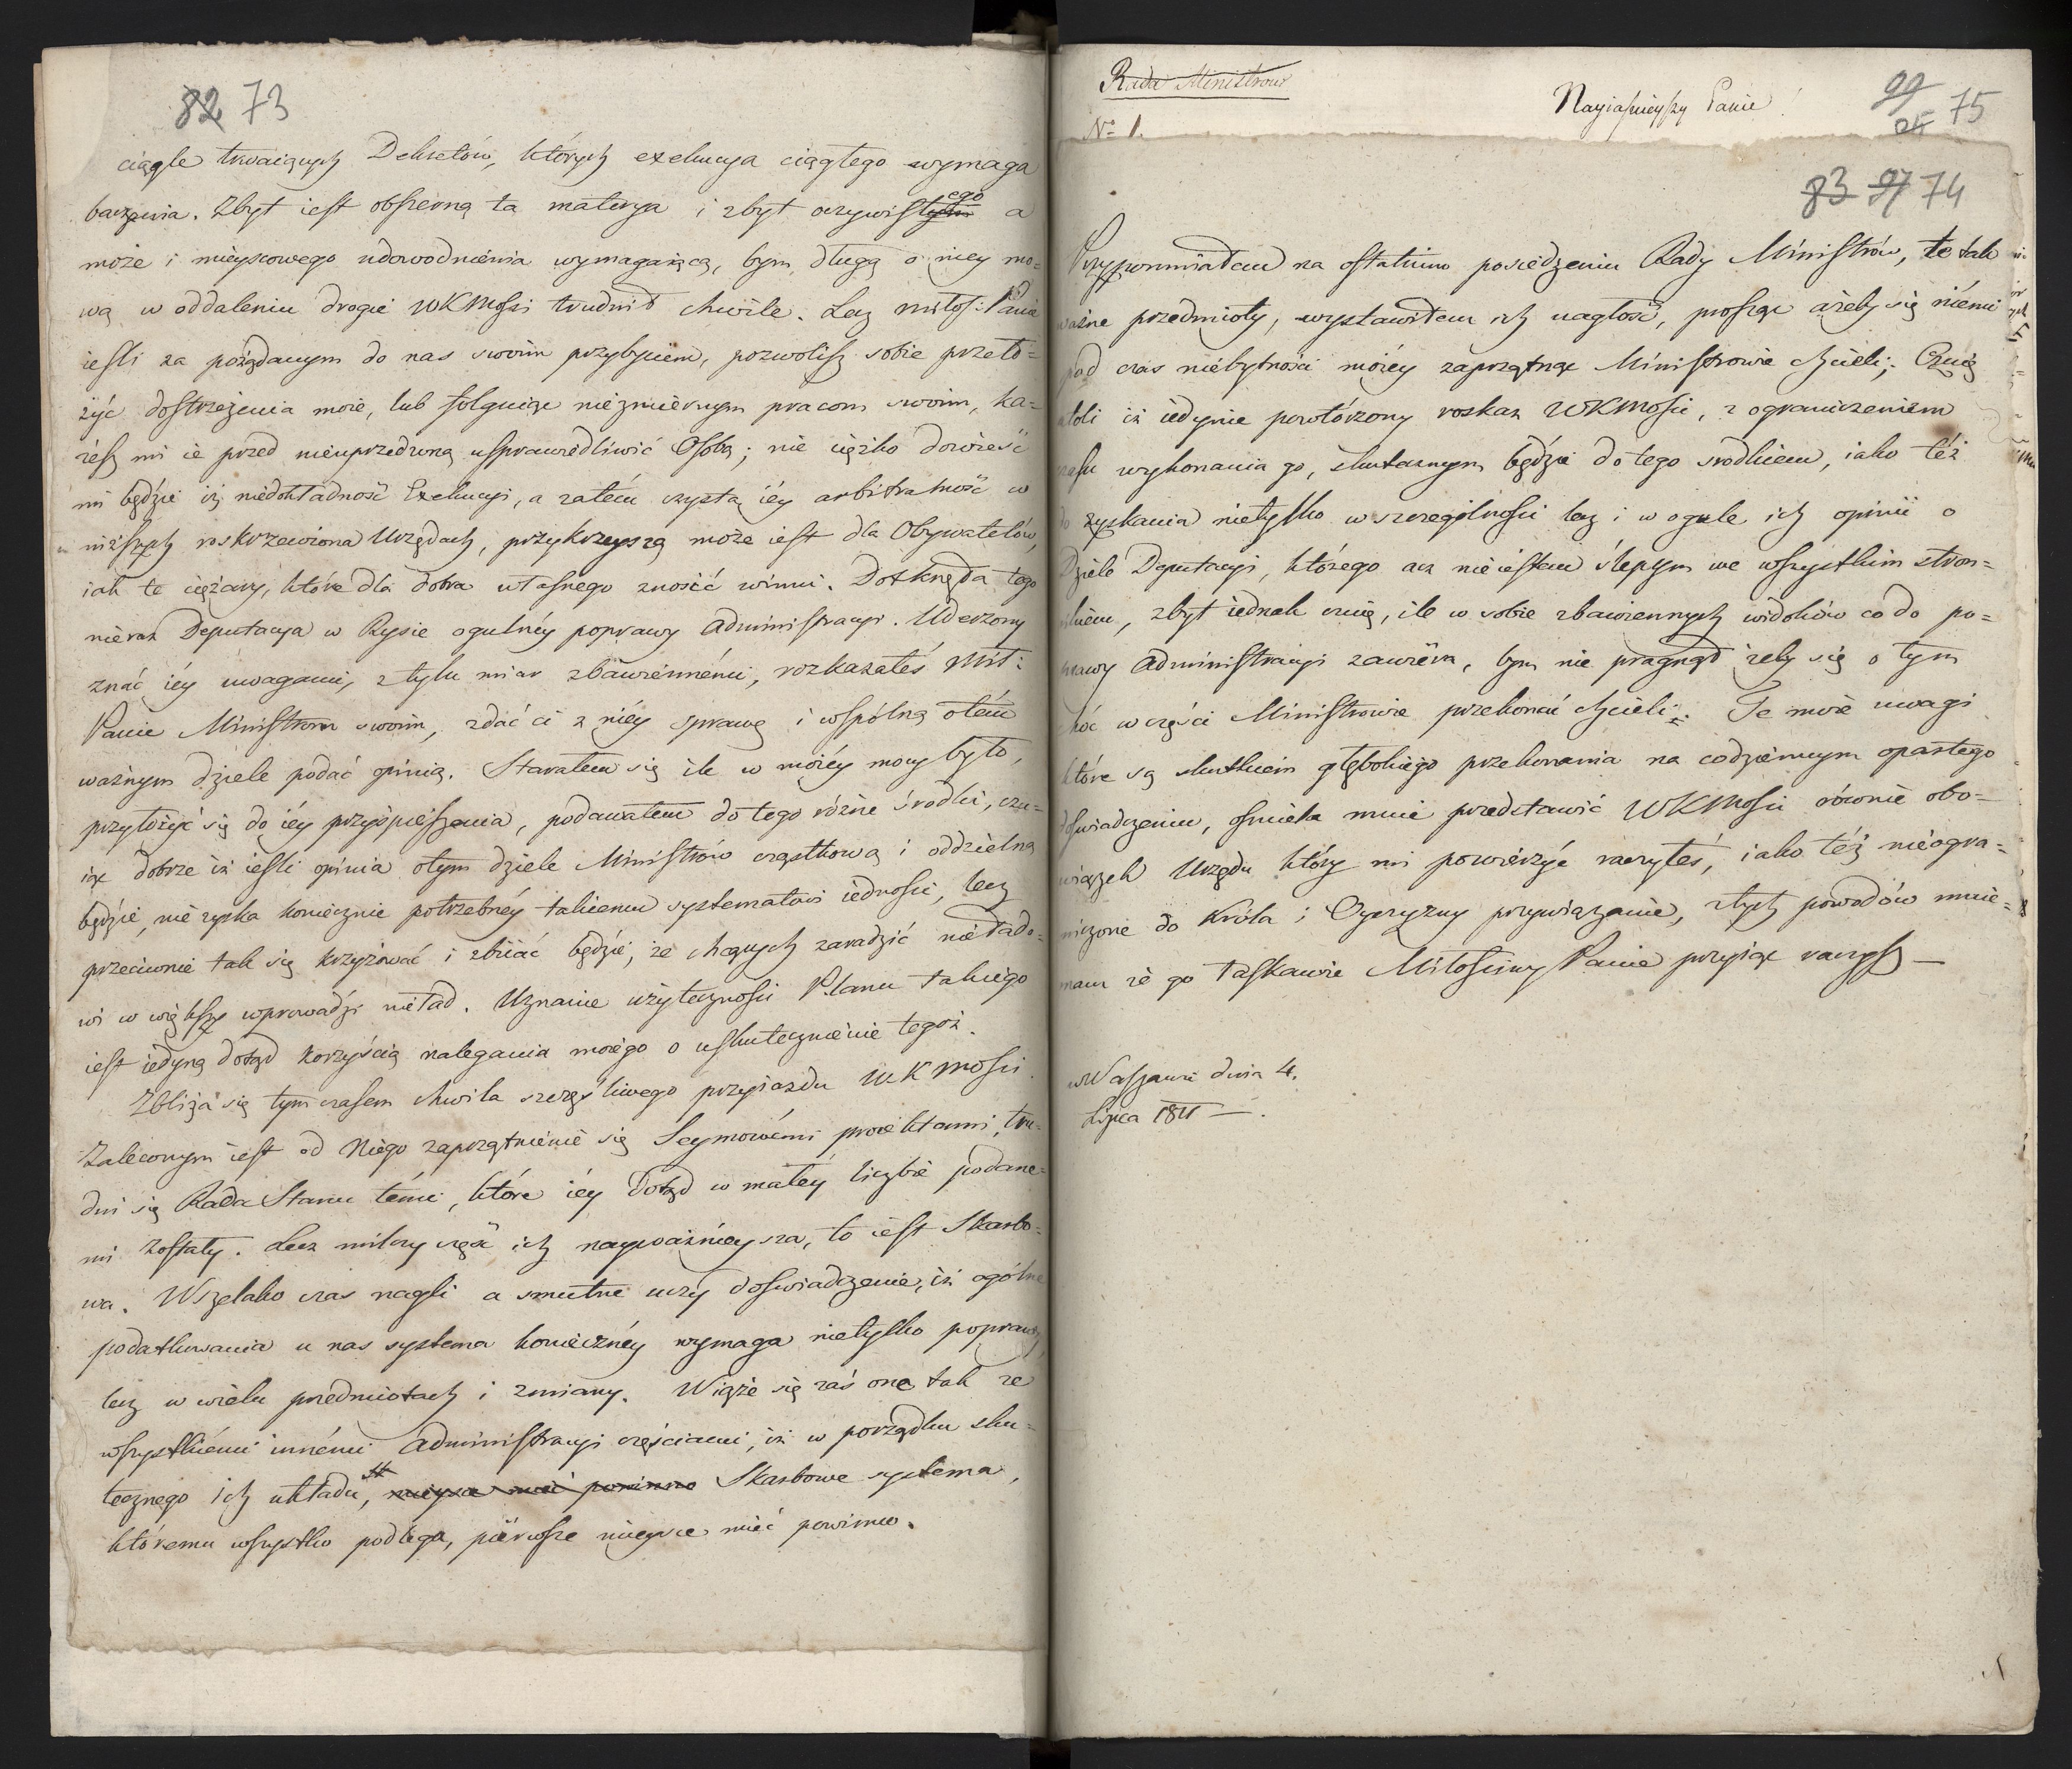 82 73
ciągle trwaiących Dekretów, których exekucya ciągłego wymaga
baczenia. Zbyt iest obszerną ta materya i zbyt oczywistego a
może i mieyscowego udowodnienia wymagaiącą, bym długą o niey mo=
wą w oddaleniu drogie WKMości trudnił chwile. Lecz Miłoś: Panie
iesli za pożądanym do nas swoim przybyciem, pozwolisz sobie przeło=
żyć dostrzeżenia moie, lub folguiąc niezmiernym pracom swoim, ka=
żesz mi ie przed nieuprzedzoną usprawiedliwić Osobą; nie ciężko dowieść
mi będzie iż niedokładność Exekucyi, a zatém czysta iéy arbitralność w
niższych roskrzewiona Urzędach, przykrzeyszą może iest dla Obywatelów,
iak te ciężary, które dla dobra własnego znosić winni. Dotknęła tego
nieraz Deputacya w Rysie ogulnéy poprawy Administracyi. Uderzony
znać iéy uwagami, z tylu miar zbawiennémi, rozkazałeś Mił:
Panie Ministrom swoim, zdać ci z niéy sprawę i wspólną o tém
ważnym dziele podać opinią. Starałem się ile w moiéy mocy było,
przyłożyć się do iéy przyśpieszenia, podawałem do tego różne środki, czu=
iąc dobrze iż iesli opinia o tym dziele Ministrów cząstkową i oddzielną
będzie, nie zyska koniecznie potrzebnéy takiemu systematowi iedności, lecz
przeciwnie tak się krzyżować i zbiiać będzie, że chcących zaradzić niełado=
wi w większy wprowadzi nieład. Uznanie użyteczności Planu takiego
iest iedyną dotąd korzyścią nalegania moiego o uskutecznienie tegoż.
Zbliża się tymczasem chwila szczęśliwego przyiazdu WKMości.
Zaleconym iest od Niego zaprzątnienie się Seymowémi proiektami, tru=
dni się Rada Stanu témi, które iéy dotąd w małéy liczbie podane=
mi zostały. Lecz milczy część ich nayważnieysza, to iest Skarbo=
wa. Wszelako czas nagli a smutne uczy doświadczenie, iż ogólne
podatkowania u nas systema koniecznéy wymaga nietylko poprawy,
lecz w wielu przedmiotach i zmiany. Wiąże się zaś one tak ze
wszystkiémi innémi Administracyi częściami, iż w porządku sku=
tecznego ich układu, mieysce mieć powinno Skarbowe systema,
któremu wszystko podlega, piérwsze mieysce mieć powinno.
Rada Ministrow
Nayiaśnieyszy Panie!
99 75
No 1.
83 74
Przypomniałem na ostatnim posiedzeniu Rady Ministrów, te tak
ważne przedmioty, wystawiłem ich nagłość, prosząc ażeby się niémi
pod czas niebytności moiéy zaprzątnąć Ministrowie chcieli; Czuię
atoli iż iedynie powtórzony roskaz WKMości, z ograniczeniem
czasu wykonania go, skutecznym będzie do tego srodkiem, iako też
do zyskania nietylko w szczególności lecz i w ogule ich opinii o
Dziele Deputacyi, którego acz nie iestem ślepym we wszystkim stron=
nikiem, zbyt iednak czuię, ile w sobie zbawiennych widoków co do po=
prawy Administracyi zawiéra, bym nie pragnął żeby się o tym
choć w części Ministrowie przekonać chcieli. Te moie uwagi
które są skutkiem głębokiego przekonania na codziennym opartego
doświadczeniu, ośmiela mnie przedstawić WKMości równie obo=
wiązek Urzędu który mi powierzyć raczyłeś, iako też nieogra=
niczone do Króla i Oyczyzny przywiązanie, z tych powodów mnie=
mam że go łaskawie Miłościwy Panie przyiąć raczysz —
w Warszawie dnia 4.
Lipca 1811 —.